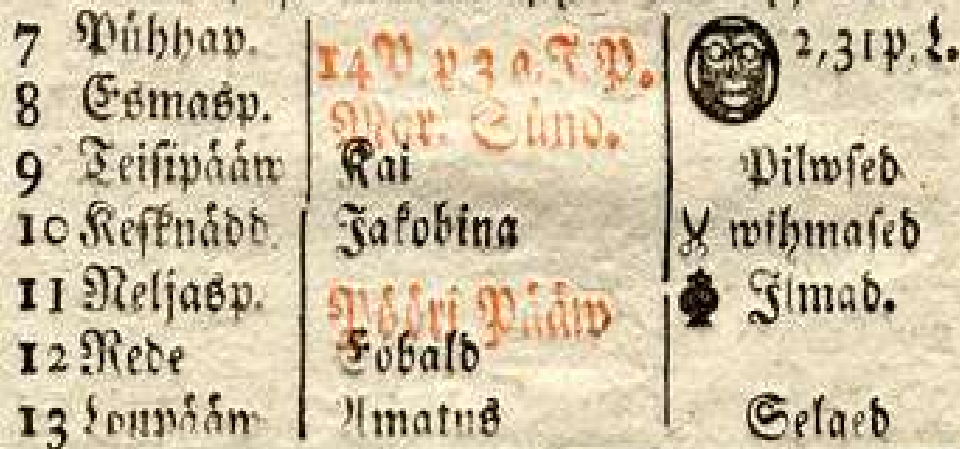 7 Pühhap. 14 P p 3 a. T. P. 2,31 p. L.
8 Esmasp. Mar. Sünd.
9 Teisipääw Kai Pilwsed
10 Kesknädd. Jakobina wihmased
11 Neljasp. Pööri Pääw Ilmad.
12 Rede Tobald
13 Loupääw Amatus Selged